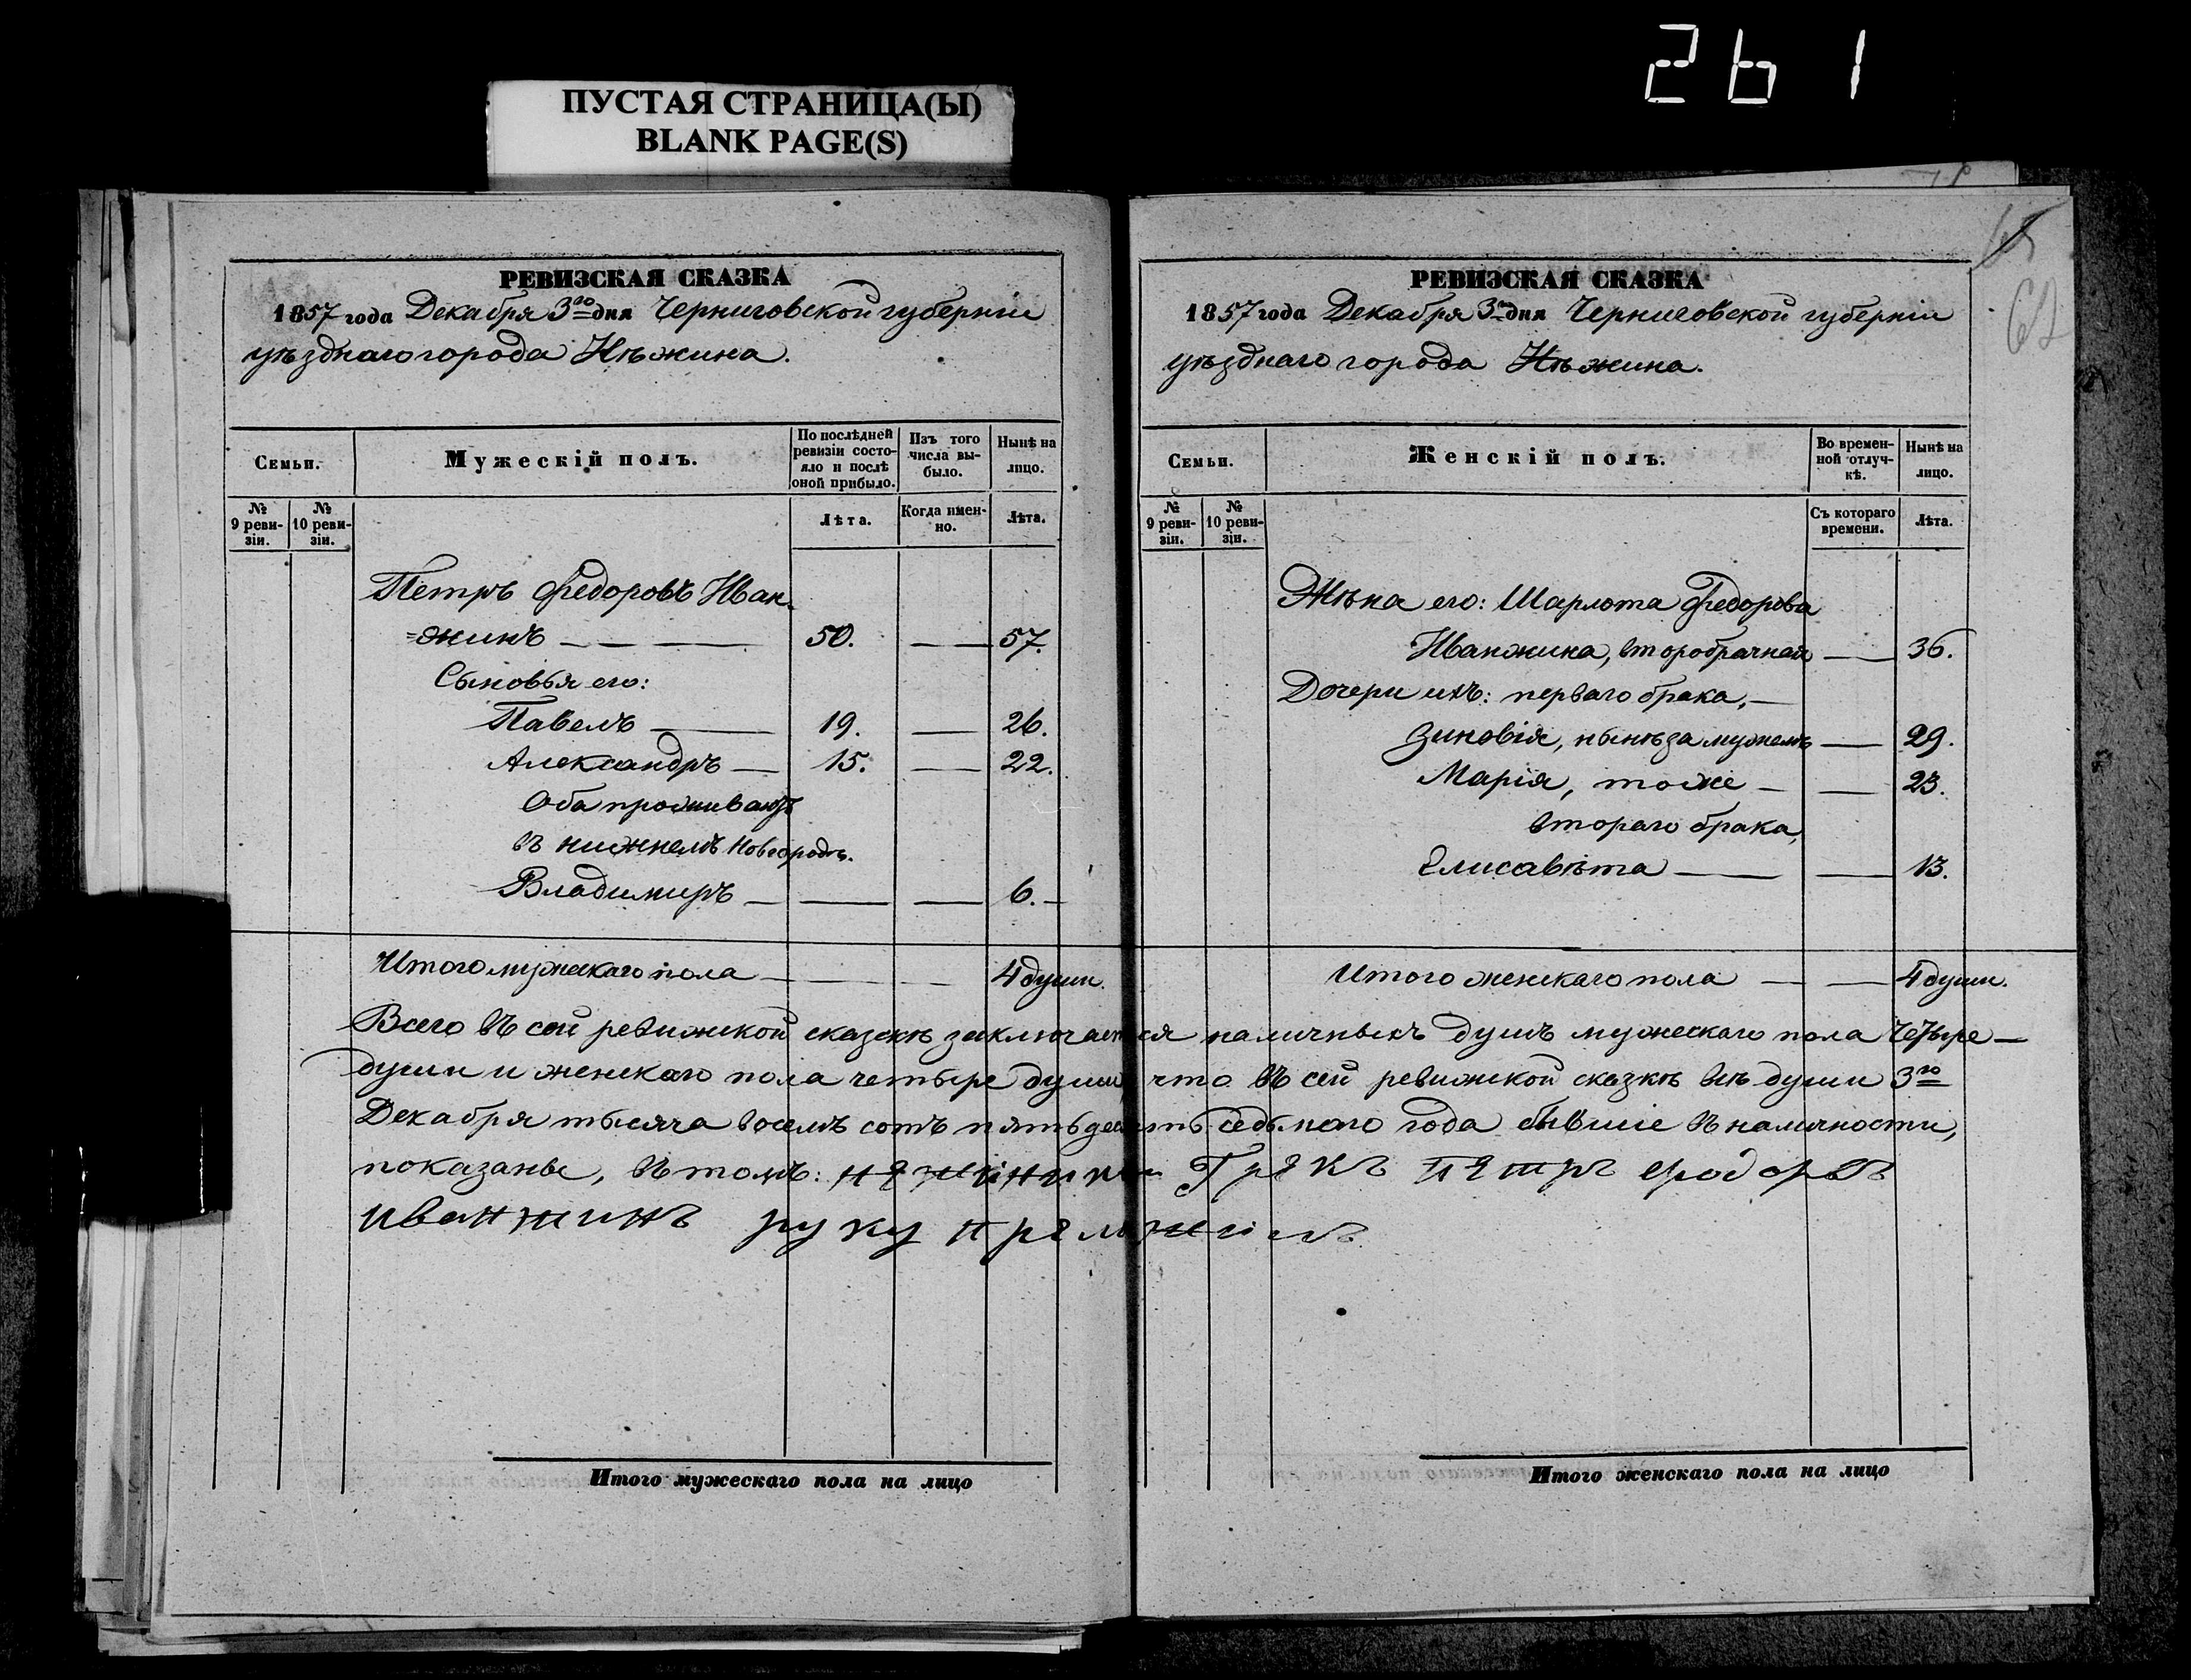 261
ПУСТАЯ СТРАНИЦА(Ы)
BLANK PAGE(S)
РЕВИЗСКАЯ СКАЗКА
1857 года Декабря 3го дня Черниговской губернiи
уѣзднаго города Нѣжина.
Семьи.
Мужескiй полъ.
По послѣдней ревизiи состояло и послѣ оной прибыло.
Изъ того числа выбыло.
Нынѣ на лицо.
№ 9 ревизiи.
№ 10 ревизiи.
Лѣта.
Когда именно.
Лѣта.
Петръ Федоровъ Иван
=жинъ — 50. — 57.
Сыновья его:
Павелъ — 19. — 26.
Александръ — 15. — 22.
Оба проживаютъ
въ нижнемъ Новгородѣ.
Владимиръ — — — 6. —
Итого мужескаго пола — — — 4 души.
РЕВИЗСКАЯ СКАЗКА
1857 года Декабря 3го дня Черниговской губернiи
уѣзднаго города Нѣжина.
65
62
Семьи.
Женскiй полъ.
Во временной отлучкѣ.
Нынѣ на лицо.
№ 9 ревизiи.
№ 10 ревизiи.
Съ котораго времени.
Лѣта.
Жѣна его: Шарлота Федорова
Иванжина, второбрачная — 36.
Дочери ихъ: перваго брака, —
Зиновiя, нынѣ за мужемъ — 29.
Марiя, тоже — — 23.
втораго брака,
Елисавѣта — — 13.
Итого женскаго пола — — 4 души.
Всего въ сей ревижской сказкѣ заключается наличныхъ душъ мужескаго пола четыре —
души и женскаго пола четыре души, что въ сей ревижской сказкѣ всѣ души 3го
Декабря тысяча восемъ сотъ пятьдесятъ седьмаго года бывшiе въ наличности,
показаны, въ томъ: Грекъ петръ
иванжинъ руку
Итого мужескаго пола на лицо
Итого женскаго пола на лицо